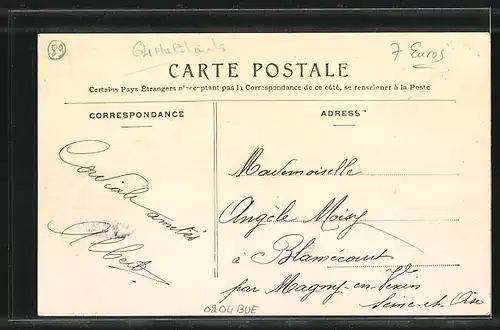 89
64 Habitants
7 Euros
CARTE POSTALE
Certains Pays Étrangers n'acceptant pas la Correspondance de ce côté, se renseigner à la Poste
CORRESPONDANCE
ADRESSE
Cordiale amitié
Albert
Mademoiselle
Angèle Moisy
à Blamécourt
par Magny-en-Vexin
Seine-et-Oise
0204BUE